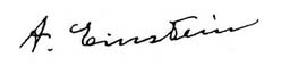 A. Einstein